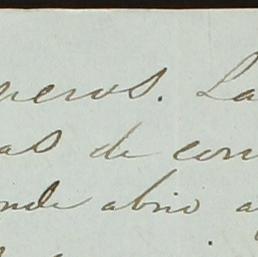 ueros. La
as de con
onde abrio a